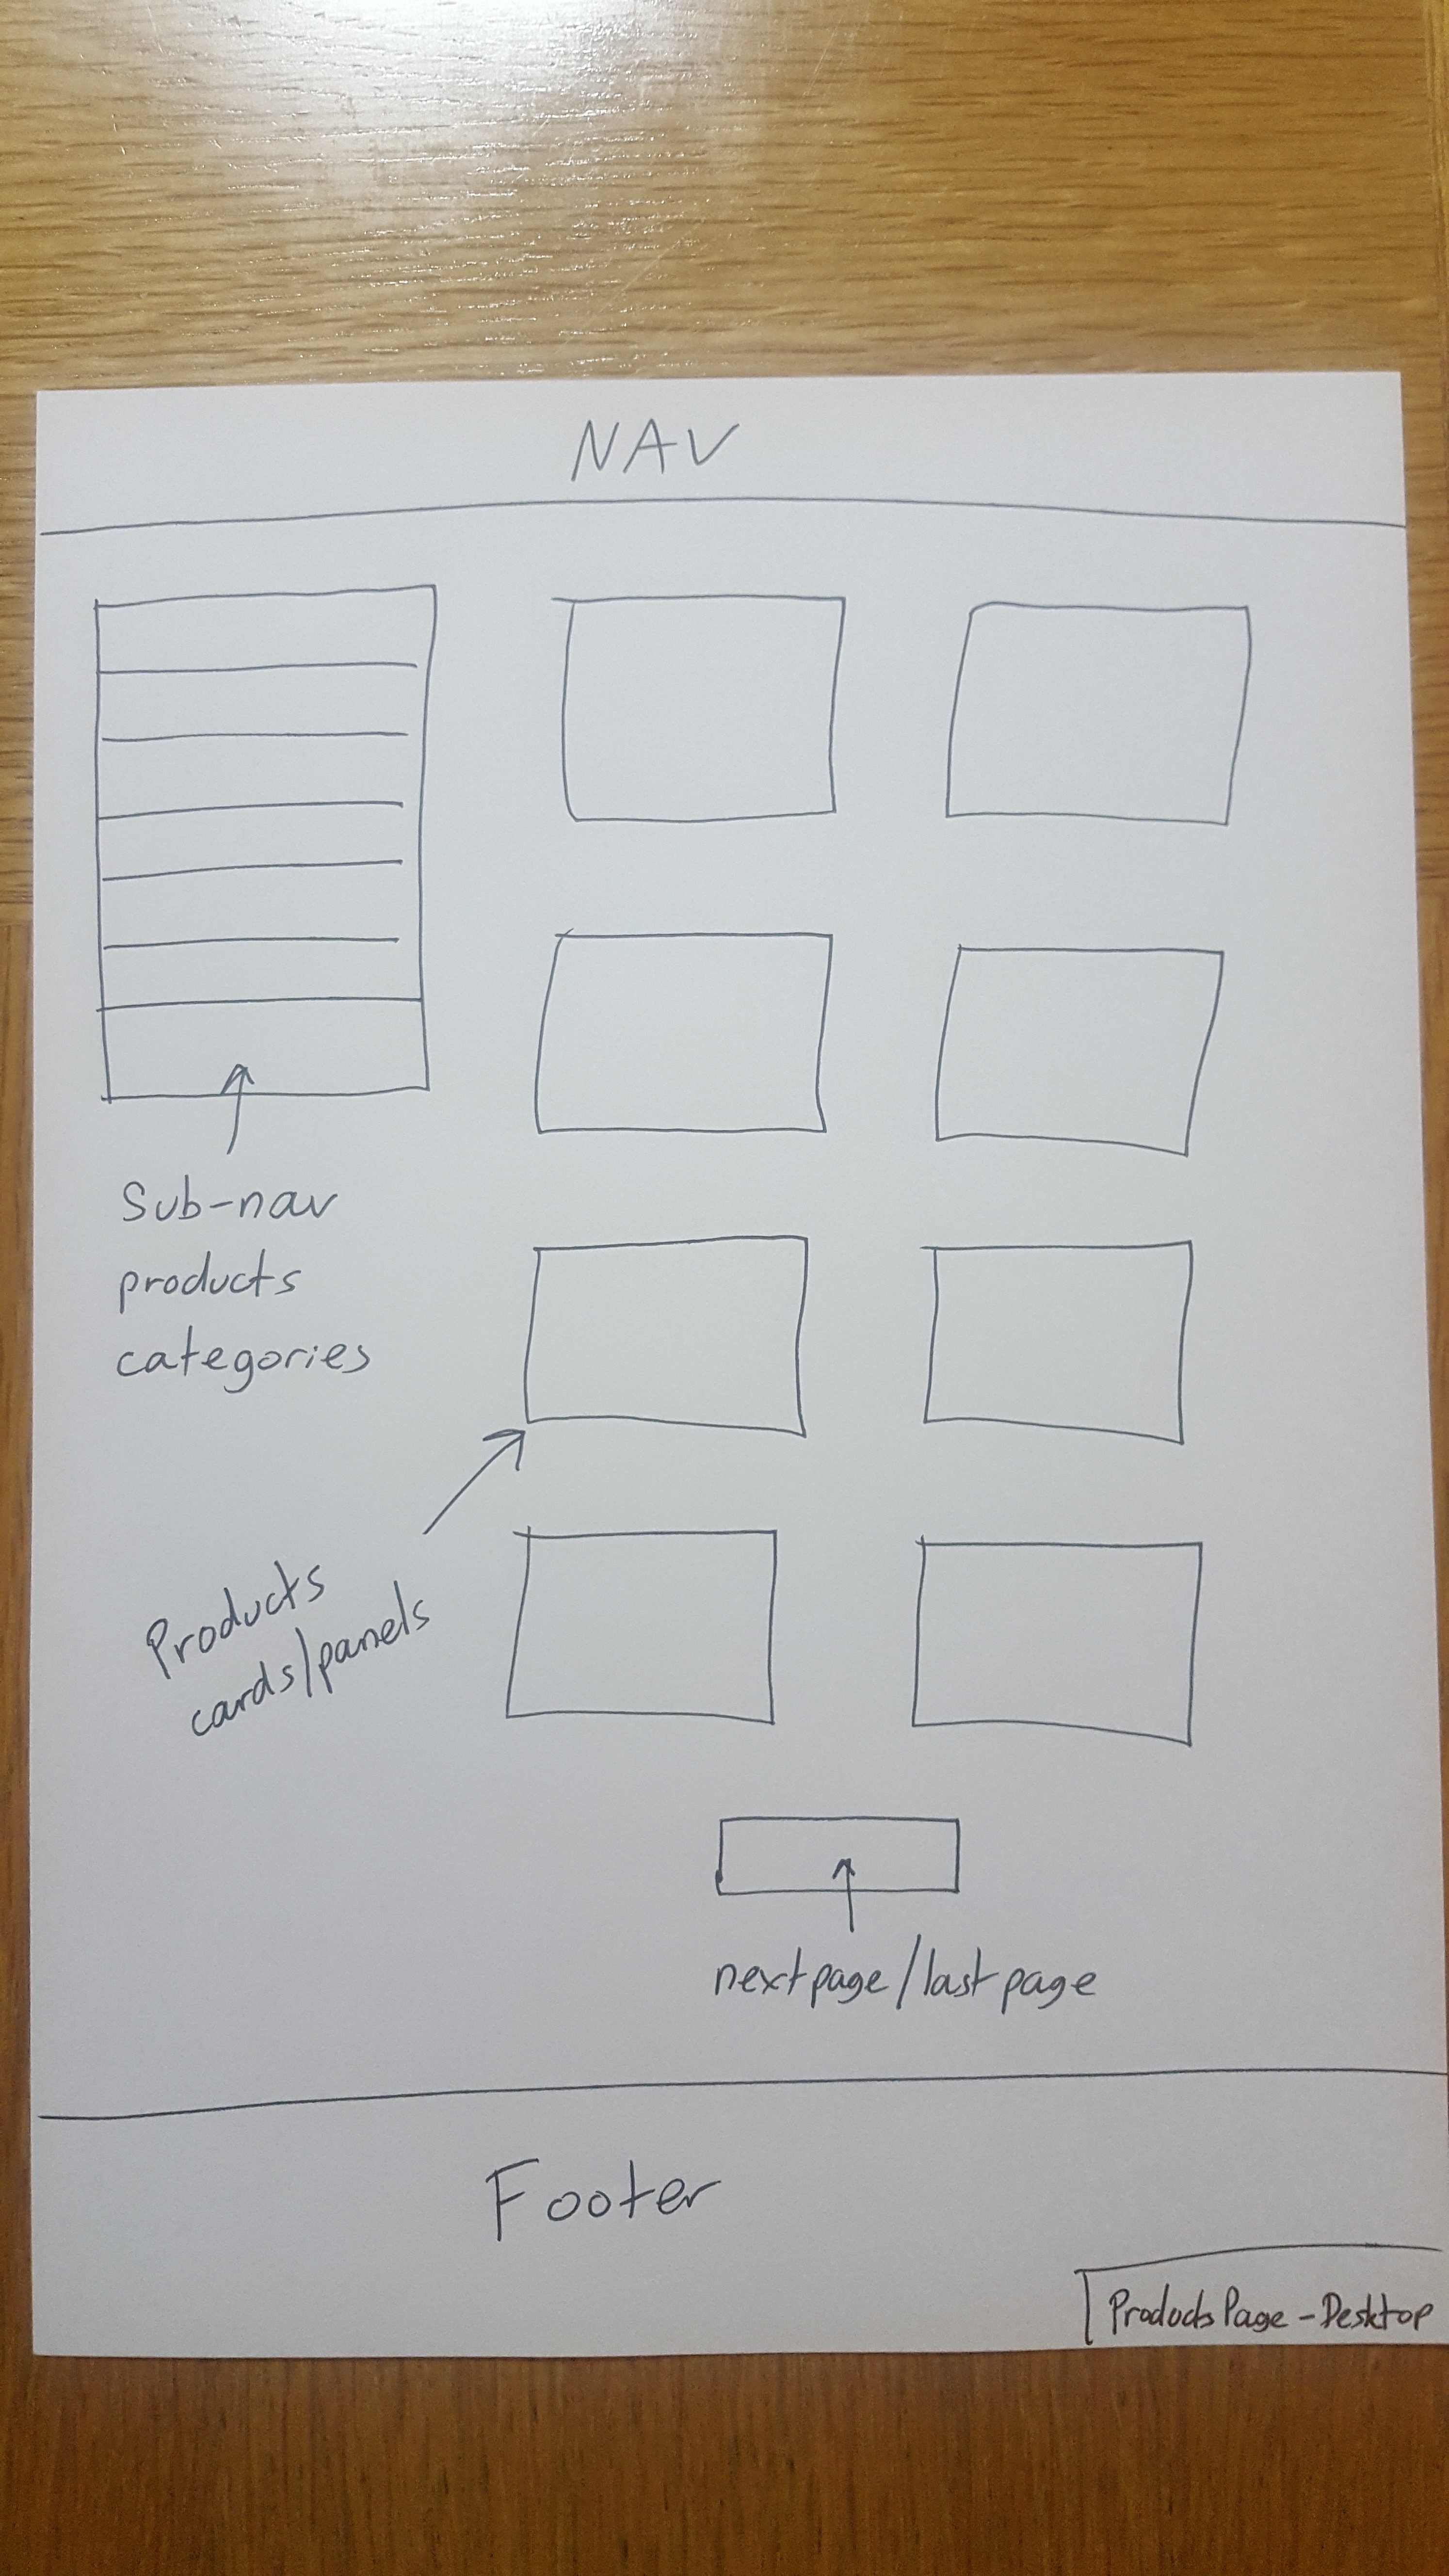 NAV
Sub-nav
products
categories
Products
cards/panels
next page/last page
Footer
Products Page - Desktop